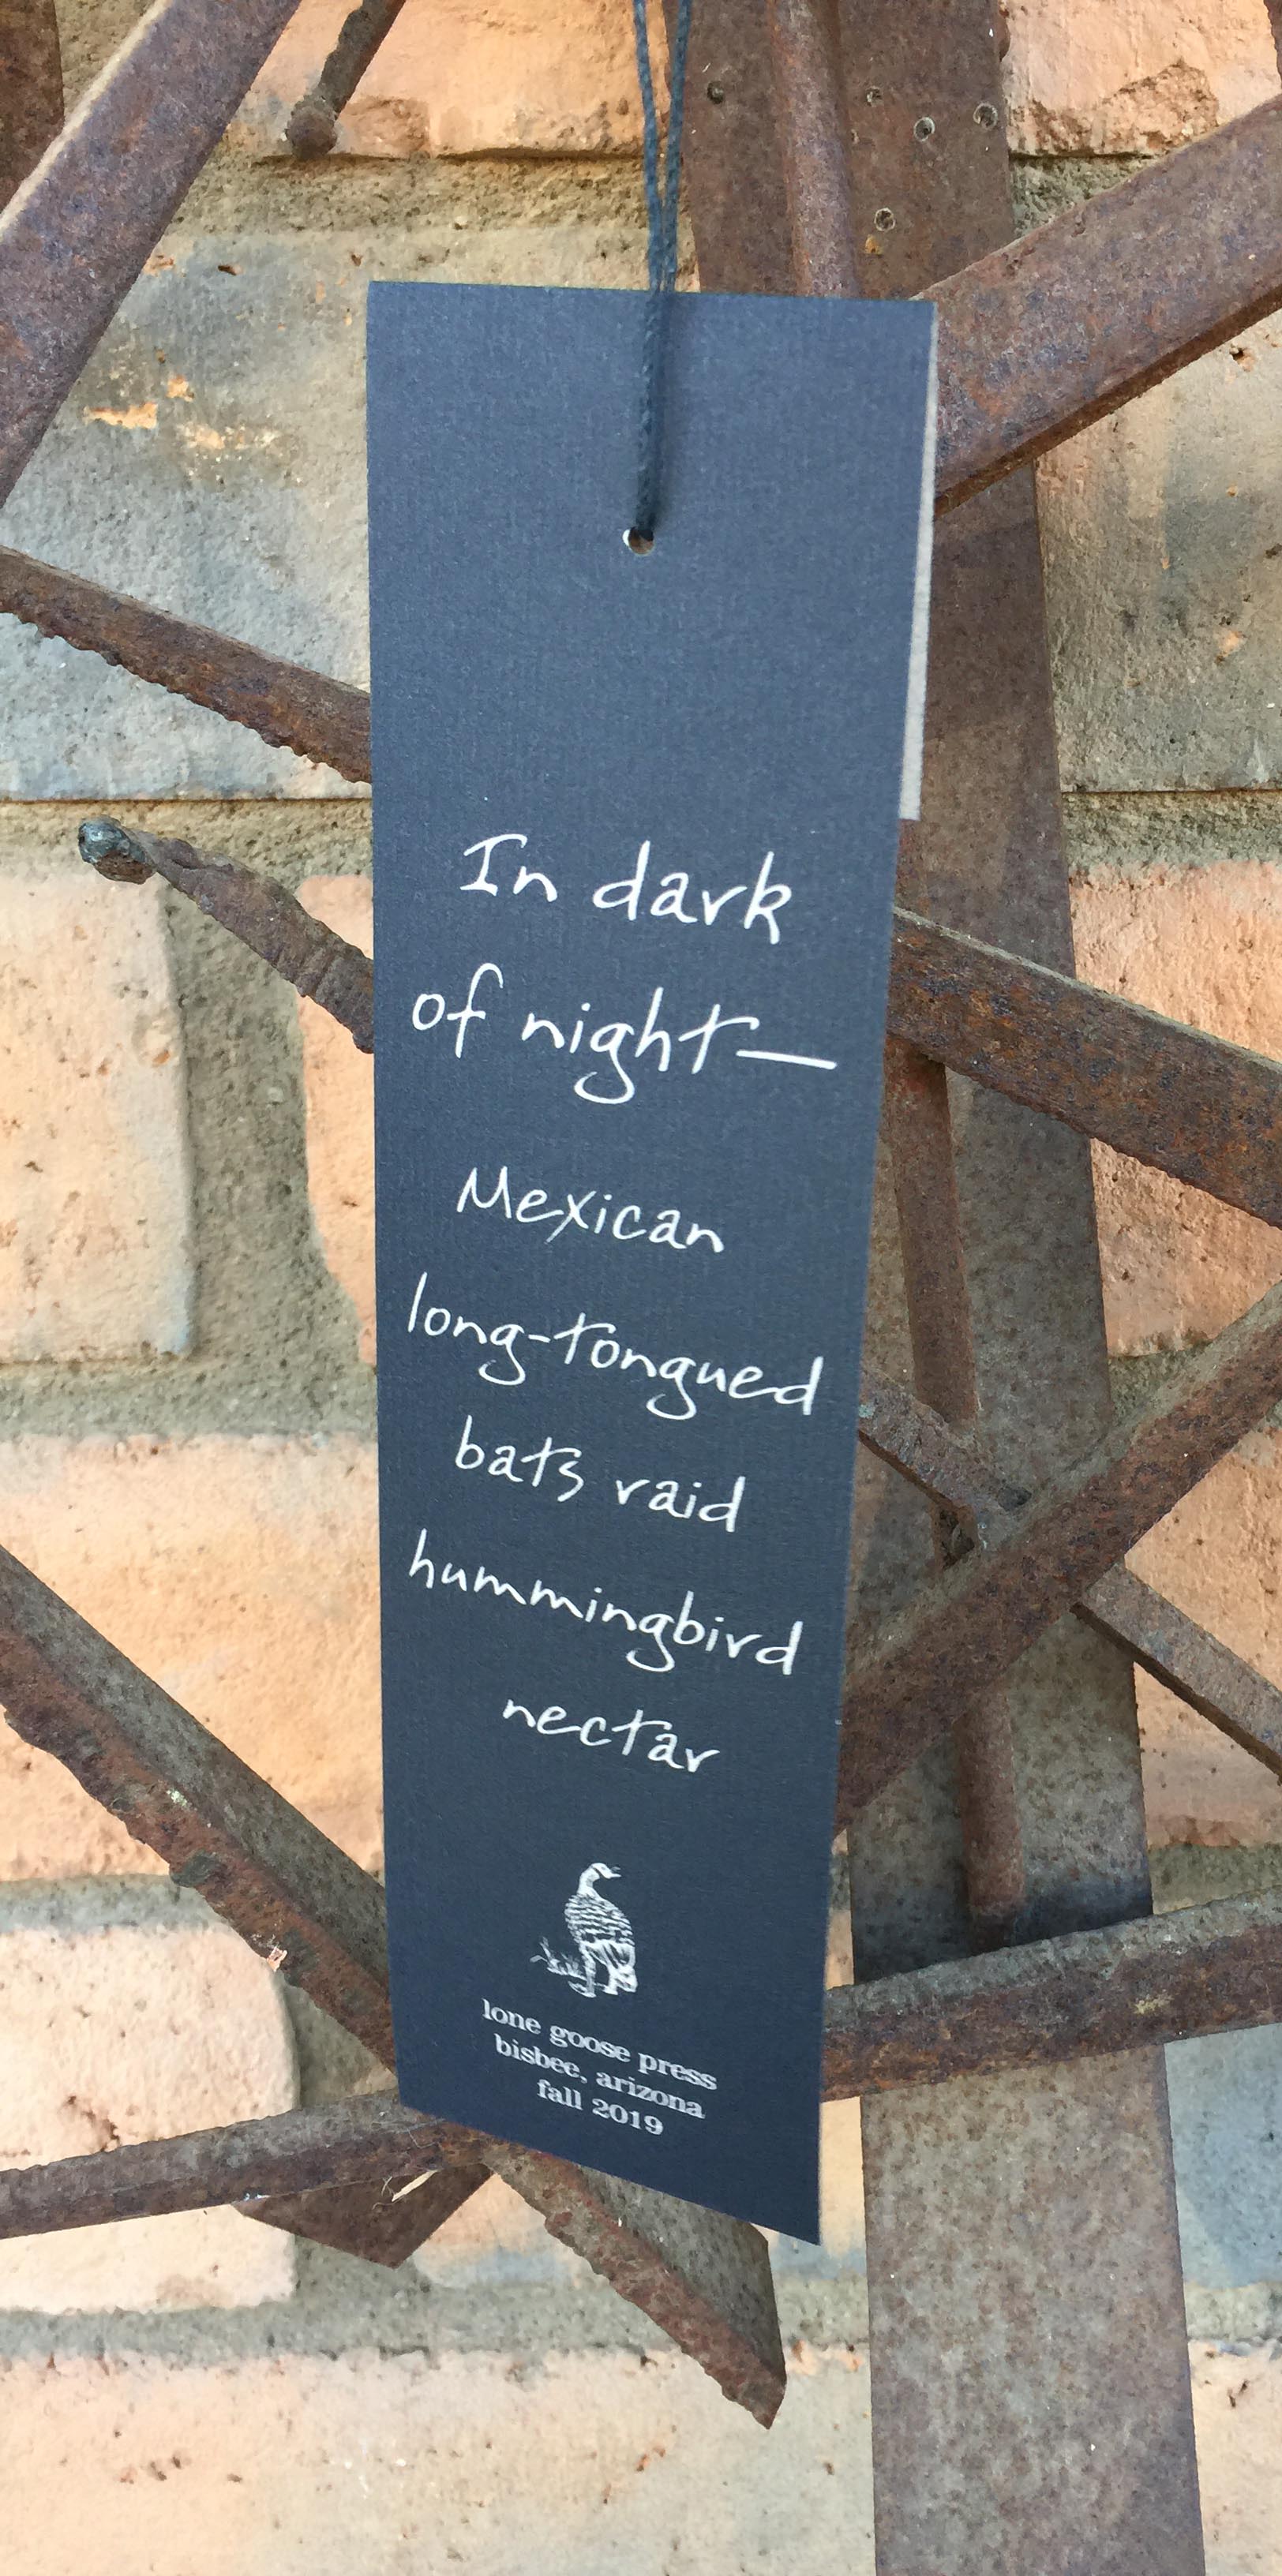 In dark
of night—
Mexican
long-tongued
bats raid
hummingbird
nectar
lone goose press
bisbee, arizona
fall 2019